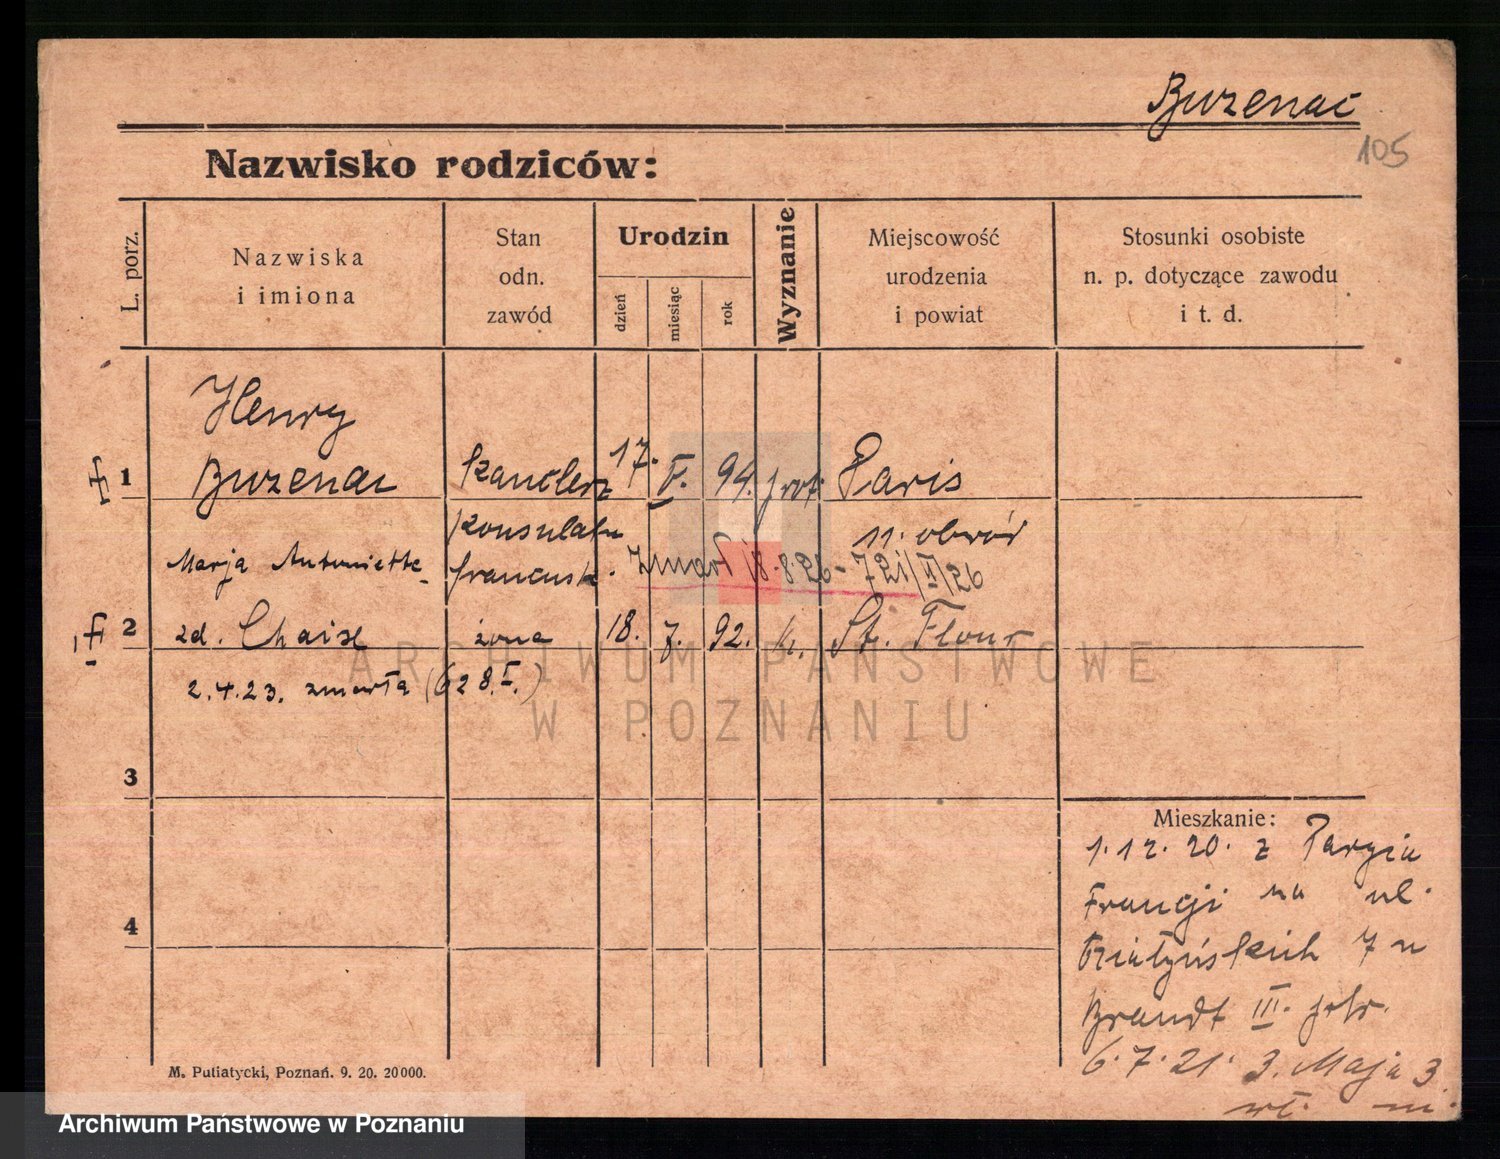 Buzenac
105
Nazwisko rodziców:
L. porz.
Nazwiska
i imiona
Stan
odn.
zawód
Urodzin
dzień
miesiąc
rok
Wyznanie
Miejscowość
urodzenia
i powiat
Stosunki osobiste
n. p. dotyczące zawodu
i t. d.
Henry
1 Buzenac kanclerz 17. V. 94. prot. Paris
konsulatu 11. obwód
francusk. zmarł 18.8.26 - 721/II/26
Marja Antoniette
2 zd. Chaise żona 18. 7. 92. k. St. Flour
2.4.23. zmarła (628.I.)
3
4
Mieszkanie:
1.12.20. z Paryża
Francji na ul.
Działyńskich 7 u
Brandt III. ptr.
6.7.21. 3. Maja 3
M. Putiatycki, Poznań. 9. 20. 20000.
ARCHIWUM PAŃSTWOWE
W POZNANIU
Archiwum Państwowe w Poznaniu